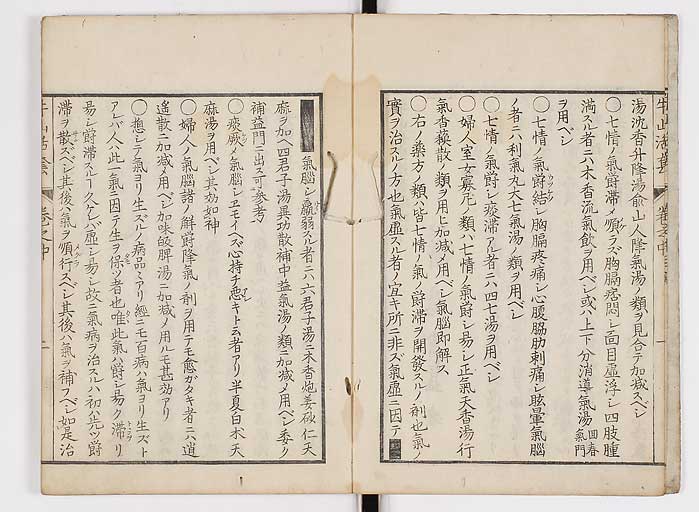 湯沈香升降湯俞山人降氣湯ノ類ヲ見合テ加減スベシ
○七情ノ氣欝滞メ順ラズ胸膈痞悶シ面目虚浮シ四肢腫
満スル者ニハ木香流氣飲ヲ用ベシ或ハ上下分消導氣湯回春氣門
ヲ用ベシ
○七情ノ氣欝結シ胸膈疼痛シ心腹脇肋刺痛シ眩暈氣腦
ノ者ニハ利氣丸大七氣湯ノ類ヲ用ベシ
○七情ノ氣欝シ痰滞アル者ニハ四七湯ヲ用ベシ
○婦人室女寡尼ノ類ハ七情ノ氣欝シ易シ正氣天香湯行
氣香蘓散ノ類ヲ用ヒ加減メ用ベシ氣腦即解ス
○右ノ藥方ノ類ハ皆七情ノ氣ノ欝滞ヲ開發スルノ剤也氣ノ
實ヲ治スルノ方也氣虚スル者ノ宜キ所ニ非ズ氣虚ニ因テ
氣腦シ羸弱スル者ニハ六君子湯ニ木香炮姜砂仁天
麻ヲ加ヘ四君子湯異功散補中益氣湯ノ類ニ加減メ用ベシ委ク
補益門ニ出ス可参考
○痰厥ノ氣腦シヱモイハズ心持チ悪キト云者アリ半夏白朮天
麻湯ヲ用ベシ其効如神
○婦人ノ氣腦諸ノ觧欝降氣ノ剤ヲ用テモ愈カタキ者ニハ逍
遥散ニ加減メ用ベシ加味皈脾湯ニ加減メ用ルモ甚効アリ
○惣シテ氣ヨリ生ズルノ病品〻アリ經ニモ百病ハ氣ヨリ生ズト
アレバ人ハ此一氣ニ因テ生ヲ保ツ者也唯此氣ハ欝シ易ク滞リ
易シ欝滞スルヿ久ケレバ虚シ易シ故ニ氣病ヲ治スルハ初ハ先ツ欝
滞ヲ散ズベシ其後ハ氣ヲ順行スベシ其後ハ氣ヲ補フベシ如是治